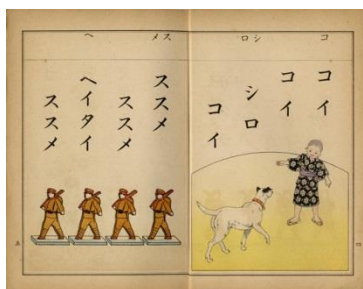 コ シロ
コイ
コイ
シロ
コイ
四
スメ ヘ
ススメ
ススメ
ヘイタイ
ススメ
五